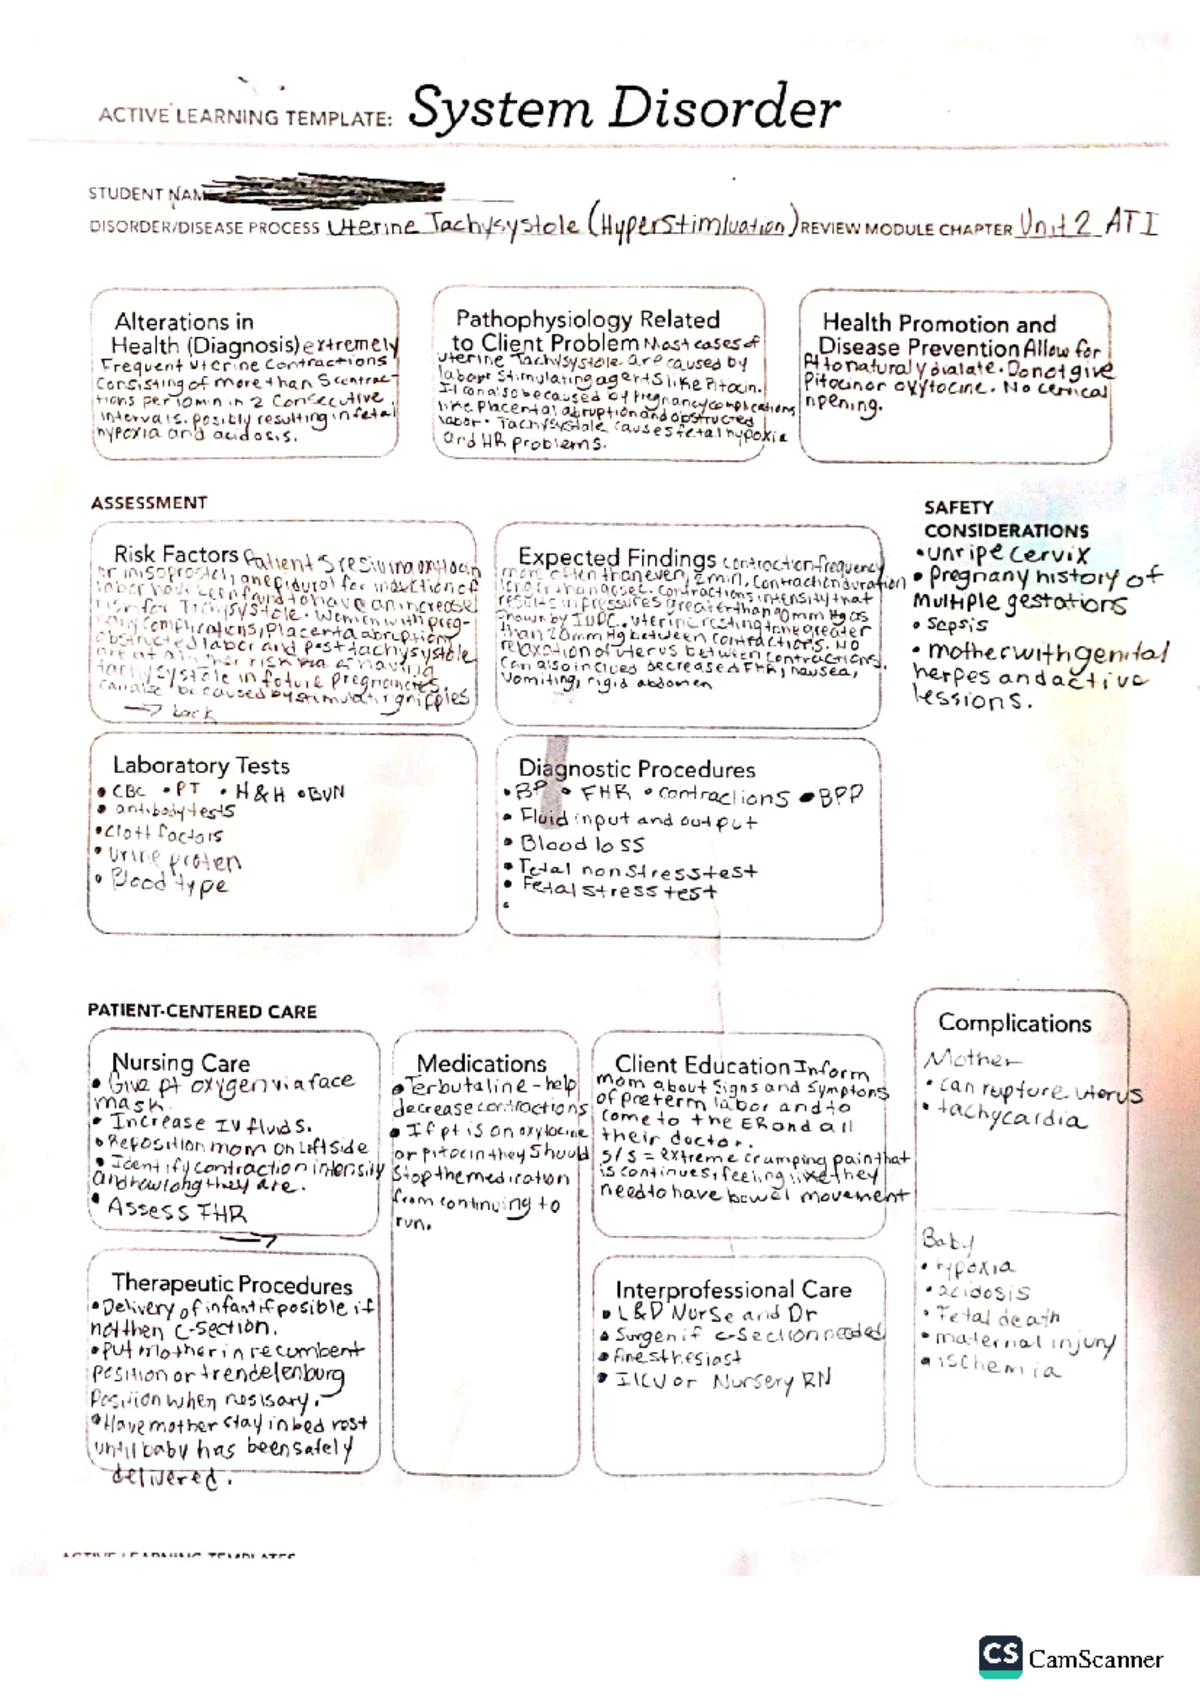 ACTIVE LEARNING TEMPLATE: System Disorder
STUDENT NAM
DISORDER/DISEASE PROCESS Uterine Tachysystole (Hyperstimluation) REVIEW MODULE CHAPTER Unit 2 ATI
Alterations in
Health (Diagnosis) extremely
Frequent uterine contractions
consisting of more than 5 contrac-
tions per 10 min in 2 consecutive
intervals. posibly resulting in fetal
hypoxia and acidosis.
Pathophysiology Related
to Client Problem Most cases of
uterine Tachysystole are caused by
labour stimulating agents like Pitocin.
It can also be caused by Pregnancy complications
like Placental abruption and obstructed
labor. Tachysystole causes fetal hypoxia
and HR problems.
Health Promotion and
Disease Prevention Allow for
Pt to naturaly dialate. Do not give
Pitocin or oxytocine. No cervical
ripening.
ASSESSMENT
Risk Factors Patient's resiving oxytocin
or misoprostel, an epidural for induction of
labor have been found to have an increase
risk for Tachysystole. Women with preg-
nancy complications, Placenta abruption,
obstructed labor and past tachysystole
are at a higher risk of having
tachysystole in future pregnancies.
can also be caused by stimulating nipples
→ back
Expected Findings contraction frequency
more often than every 2 min. Contraction duration
longer than 90 sec. contractions intensity that
results in pressures greater than 90 mm Hg as
shown by IUPC. uterine resting tone greater
than 20 mm Hg between contractions. NO
relaxation of uterus between contractions.
Can also inclued decreased FHR, nausea,
vomiting, rigid abdomen
SAFETY
CONSIDERATIONS
• unripe cervix
• Pregnany history of
Multiple gestations
• Sepsis
• mother with genital
herpes and active
lessions.
Laboratory Tests
• CBC • PT • H & H • BUN
• antibody tests
• Clott factors
• urine protien
• Blood type
Diagnostic Procedures
• BP • FHR • contractions • BPP
• Fluid input and output
• Blood loss
• Fetal non stress test
• Fetal stress test
•
PATIENT-CENTERED CARE
Nursing Care
• Give pt oxygen via face
mask.
• Increase IV fluids.
• Reposition mom on left side
• Identify contraction intensity
and how long they are.
• Assess FHR
→
Medications
• Terbutaline - help
decrease contractions
• If pt is on oxytocine
or pitocin they should
Stop the medication
from continuing to
run.
Client Education Inform
mom about signs and symptons
of preterm labor and to
come to the ER and all
their doctor.
S/S = extreme cramping pain that
is continues, feeling like they
need to have bowel movement
Complications
Mother
• can rupture uterus
• tachycardia
Baby
• hypoxia
• acidosis
• Fetal death
• maternal injury
• ischemia
Therapeutic Procedures
• Delivery of infant if posible if
not then C-section.
• Put mother in recumbent
position or trendelenburg
Position when nesisary.
• Have mother stay in bed rest
until baby has been safely
delivered.
Interprofessional Care
• L&D Nurse and Dr
• Surgen if c-section needed
• Anesthesiast
• ICU or Nursery RN
ACTIVE LEARNING TEMPLATES
CS CamScanner